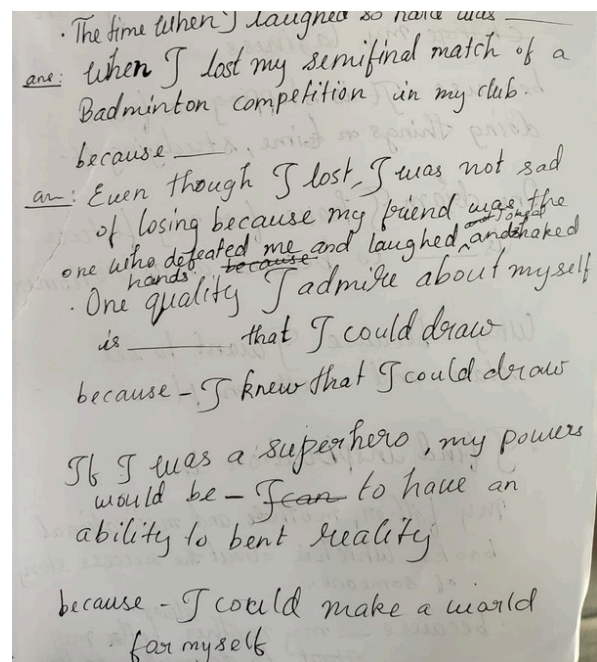 · The time when I laughed so hard was ____
ans: when I lost my semifinal match of a
Badminton competition in my club.
because ____
an: Even though I lost, I was not sad
of losing because my friend was the
one who defeated me and laughed, and shaked
hands. because
· One quality I admire about myself
is ____ that I could draw
because - I knew that I could draw
If I was a superhero, my powers
would be - I can to have an
ability to bent reality
because - I could make a world
for myself